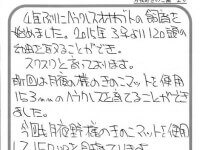 4年ぶりにヘラクレスオオカブトの飼育を
始めました。2015年3年より120頭の
幼虫をあることができ、
スクスクと育っております。
前回は月夜野産のきのこマットを使用
153mmのヘラクレスを育てることができ
ました。
今回も月夜野産きのこマットを使用
して150mmを目指しています